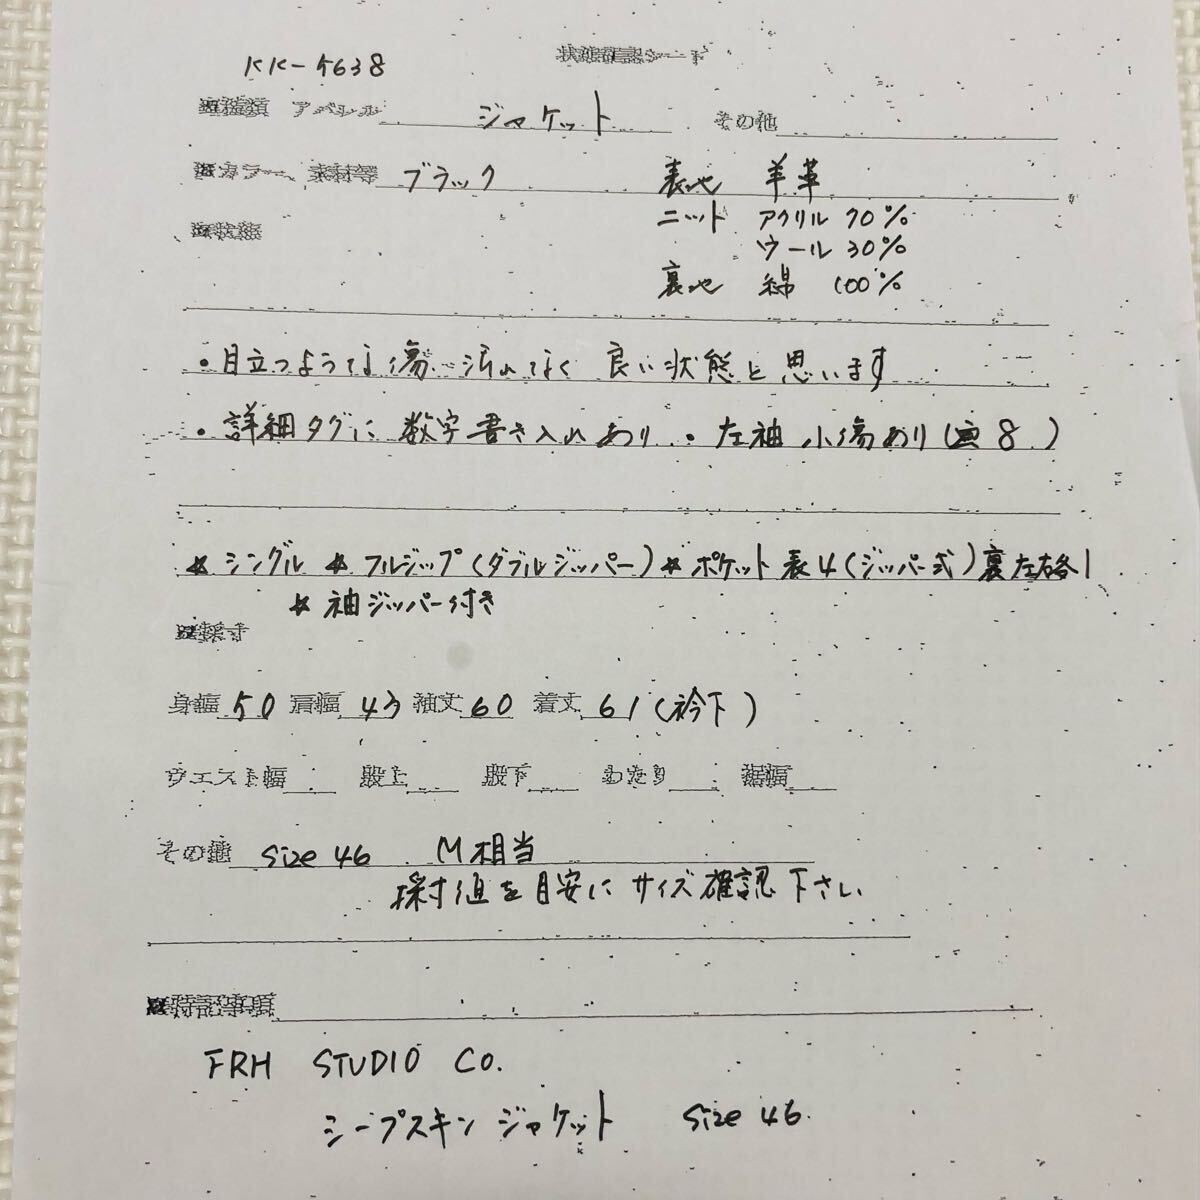 状態確認シート
KK-5638
※種類 アパレル ジャケット その他
※カラー、素材等 ブラック 表地 羊革
ニット アクリル 70%
※状態
ウール 30%
裏地 綿 100%
・目立つような傷・汚れなく 良い状態と思います
・詳細タグに 数字書き入れあり ・左袖 小傷あり(画8)
☆シングル ☆フルジップ(ダブルジッパー) ☆ポケット 表4(ジッパー式)裏左右各1
☆袖ジッパー付き
※採寸
身幅 50 肩幅 43 袖丈 60 着丈 61(衿下)
ウエスト幅 股上 股下 わたり 裾幅
その他 size 46 M相当
採寸値を目安にサイズ確認下さい
※特記事項
FRH STUDIO CO.
シープスキン ジャケット size 46